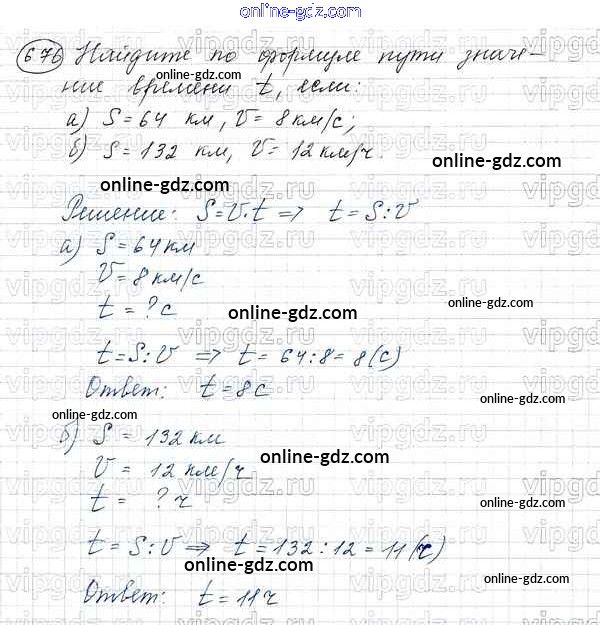 online-gdz.com
676 Найдите по формуле пути значе-
ние времени t, если:
online-gdz.com
а) S = 64 км, V = 8 км/с;
б) S = 132 км, V = 12 км/ч.
online-gdz.com
online-gdz.com
Решение: S = V · t ⇒ t = S : V
а) S = 64 км
online-gdz.com
V = 8 км/с
t = ? с
online-gdz.com
online-gdz.com
t = S : V ⇒ t = 64 : 8 = 8 (с)
Ответ: t = 8 с
online-gdz.com
online-gdz.com
б) S = 132 км
online-gdz.com
V = 12 км/ч
t = ? ч
online-gdz.com
t = S : V ⇒ t = 132 : 12 = 11 (ч)
online-gdz.com
Ответ: t = 11 ч
online-gdz.com
vipgdz.ru